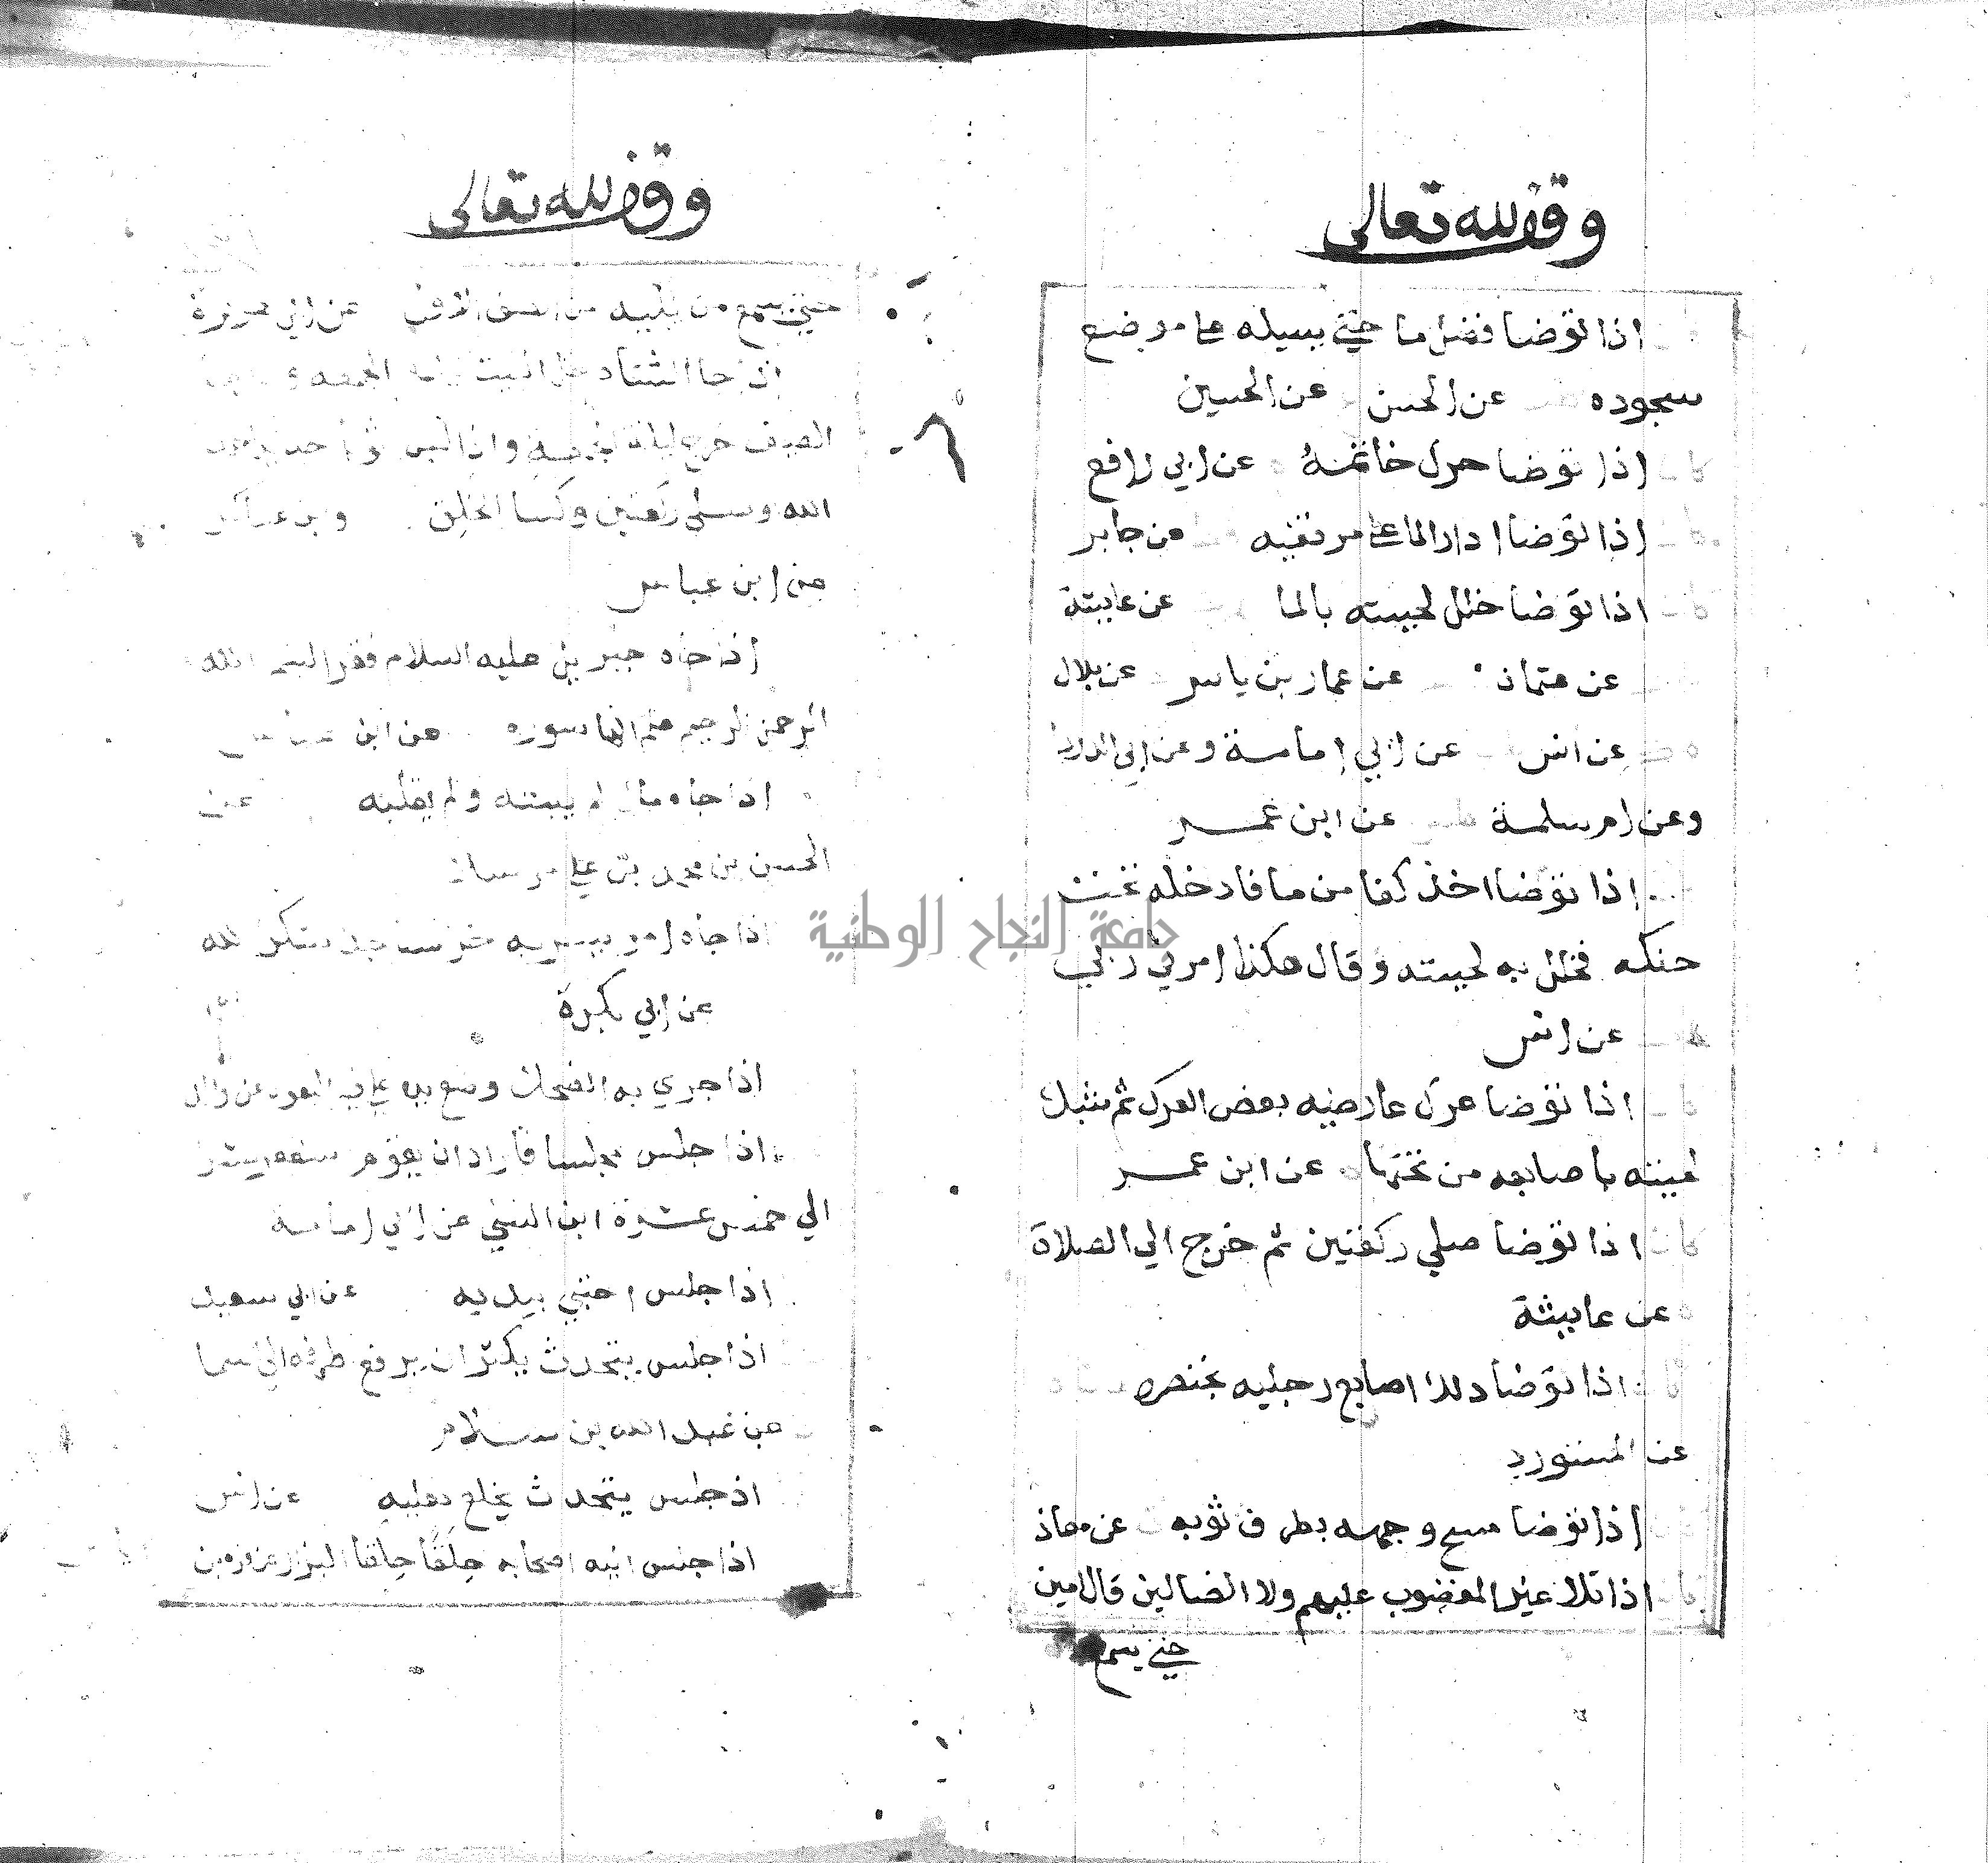 وقف لله تعالى
اذا توضا فضل ما حتى يسيله على موضع
سجوده عن الحسن عن الحسين
كان اذا توضا حرك خاتمه عن ابي رافع
كان اذا توضا ادار الما على مرفقيه عن جابر
كان اذا توضا خلل لحيته بالما عن عايشة
عن عثمان عن عمار بن ياسر عن بلال
عن انس عن ابي امامة وعن ابي الدردا
وعن ام سلمة عن ابن عمر
اذا توضا اخذ كفا من ما فادخله تحت
حنكه فخلل به لحيته وقال هكذا امرني ربي
عن انس
كان اذا توضا عرك عارضيه بعض العرك ثم شبك
لحيته باصابعه من تحتها عن ابن عمر
كان اذا توضا صلي ركعتين ثم خرج الي الصلاة
عن عايشة
كان اذا توضا دلك اصابع رجليه بخنصره
عن المستورد
اذا توضا مسح وجهه بطرف ثوبه عن معاذ
كان اذا تلا غير المغضوب عليهم ولا الضالين قال امين
حتى يسمع
وقف لله تعالى
حتى يسمع من يليه من الصف الاول عن ابي هريرة
اذا جا الشتا دخل البيت ليلة الجمعه و
الصيف خرج ليلة الجمعة واذا لبس ثوبا حمد
الله وصلى ركعتين وكسا الخلق وبن عساكر
عن ابن عباس
اذا جاه جبريل عليه السلام فقرا بسم الله
الرحمن الرحيم علم انها سوره عن ابن عباس
اذا جاه مال لم يبيته ولم يقيله عن
الحسن بن محمد بن علي مرسلا
اذا جاه امر يسر به خر ساجدا شكرا لله
عن ابي بكرة
اذا جري به الضحك وضع يده على فيه البغوي عن والد
اذا جلس مجلسا فاراد ان يقوم استغفر عشرا
الي خمس عشرة ابن السني عن ابي امامة
اذا جلس احتبي بيديه عن ابي سعيد
اذا جلس يتحدث يكثر ان يرفع طرفه الى السما
عن عبد الله بن سلام
اذ جلس يتحدث يخلع نعليه عن انس
اذا جلس اليه اصحابه حلقا حلقا البزار عن قره بن
جامعة النجاح الوطنية